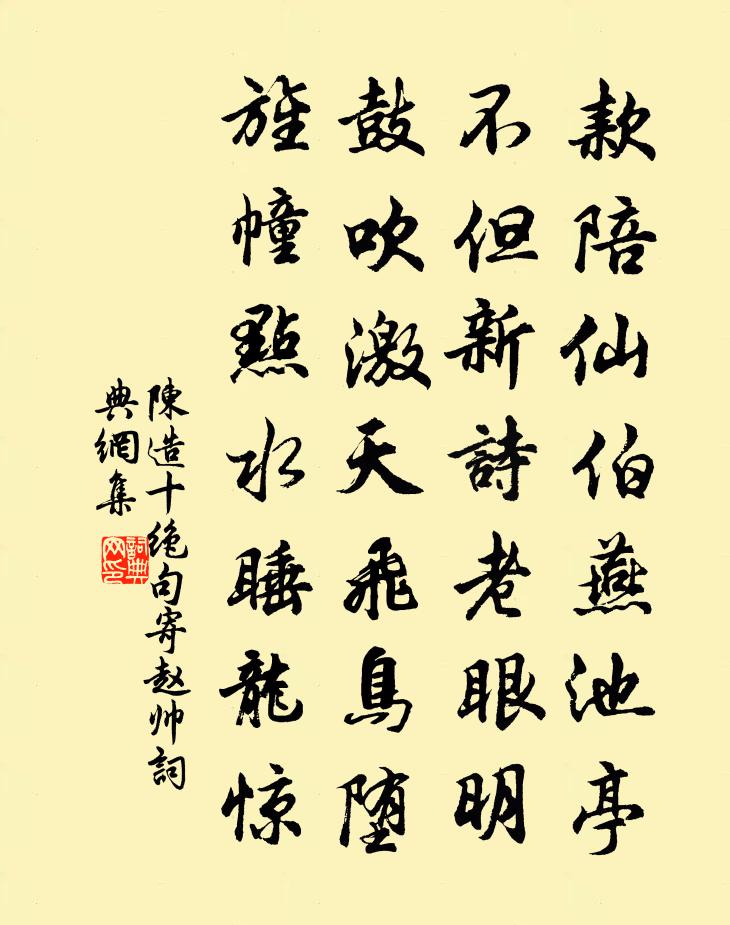 款陪仙伯燕池亭
不但新詩老眼明
鼓吹激天飛鳥堕
旌幢點水睡龍惊
陳造十绝句寄赵帅詞
典網集
詞典網印